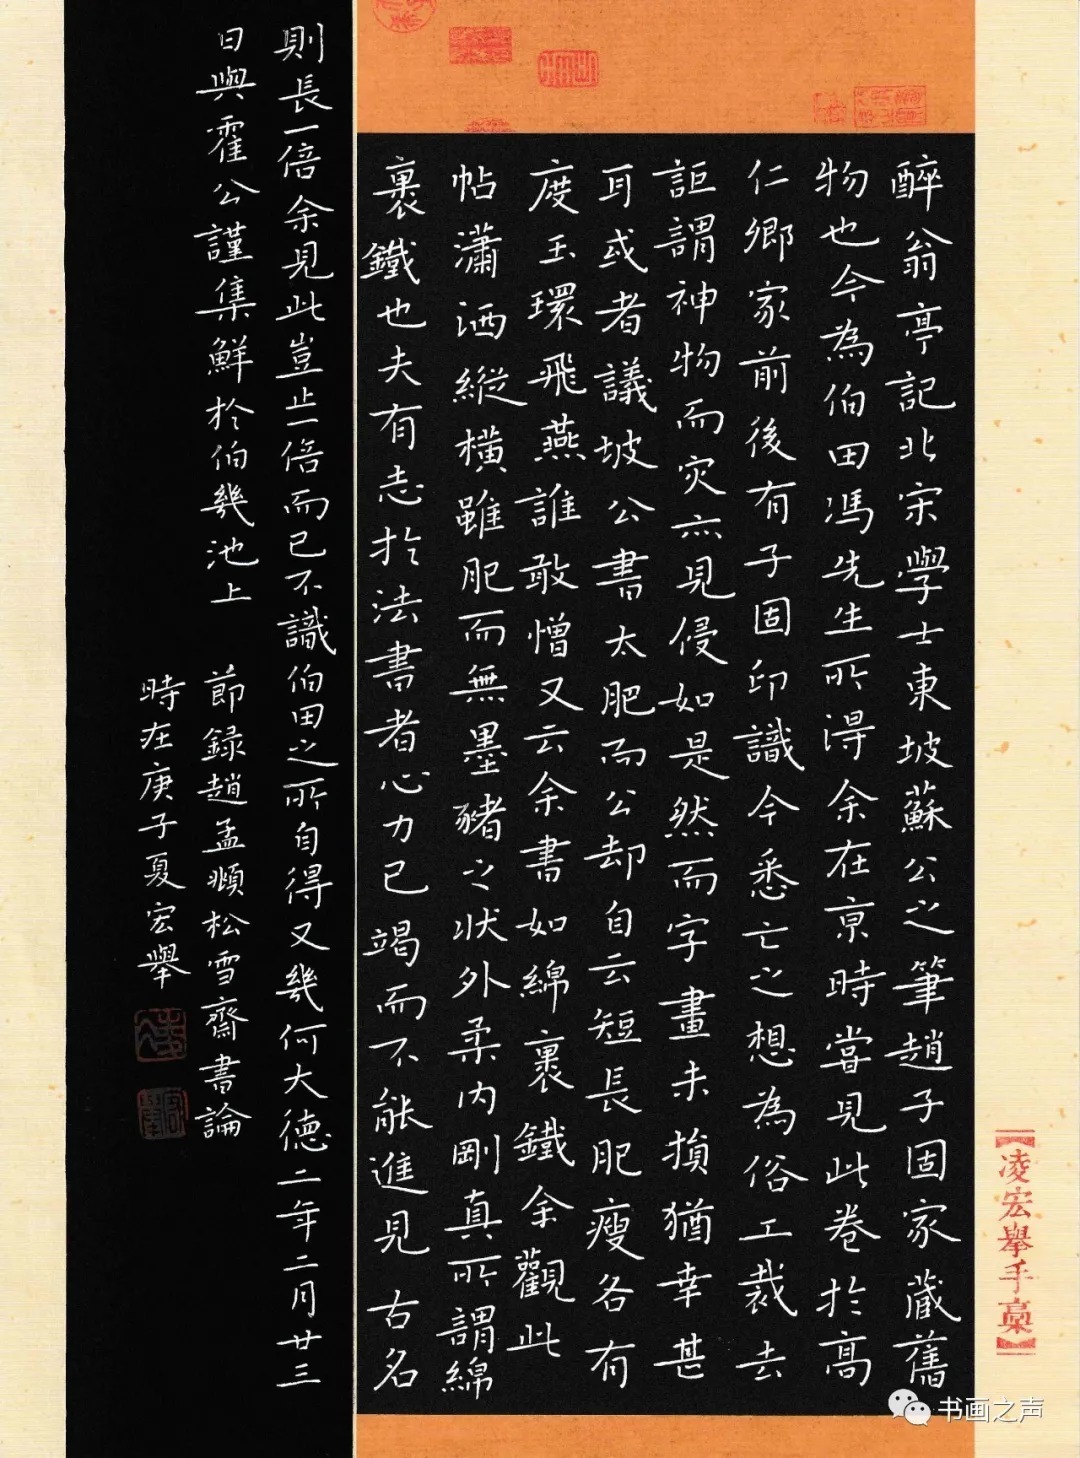 醉翁亭記北宋學士東坡蘇公之筆趙子固家藏舊
物也今為伯田馮先生所得余在京時嘗見此卷於高
仁卿家前後有子固印識今悉亡之想為俗工裁去
詎謂神物而灾亦見侵如是然而字畫未損猶幸甚
耳或者議坡公書太肥而公却自云短長肥瘦各有
度玉環飛燕誰敢憎又云余書如綿裹鐵余觀此
帖瀟洒縱橫雖肥而無墨豬之狀外柔內剛真所謂綿
裹鐵也夫有志於法書者心力已竭而不能進見古名
則長一倍余見此豈止一倍而已不識伯田之所自得又幾何大德二年二月廿三
日與霍公謹集鮮於伯幾池上
節録趙孟頫松雪齋書論
時在庚子夏宏舉
【凌宏舉手稾】
书画之声